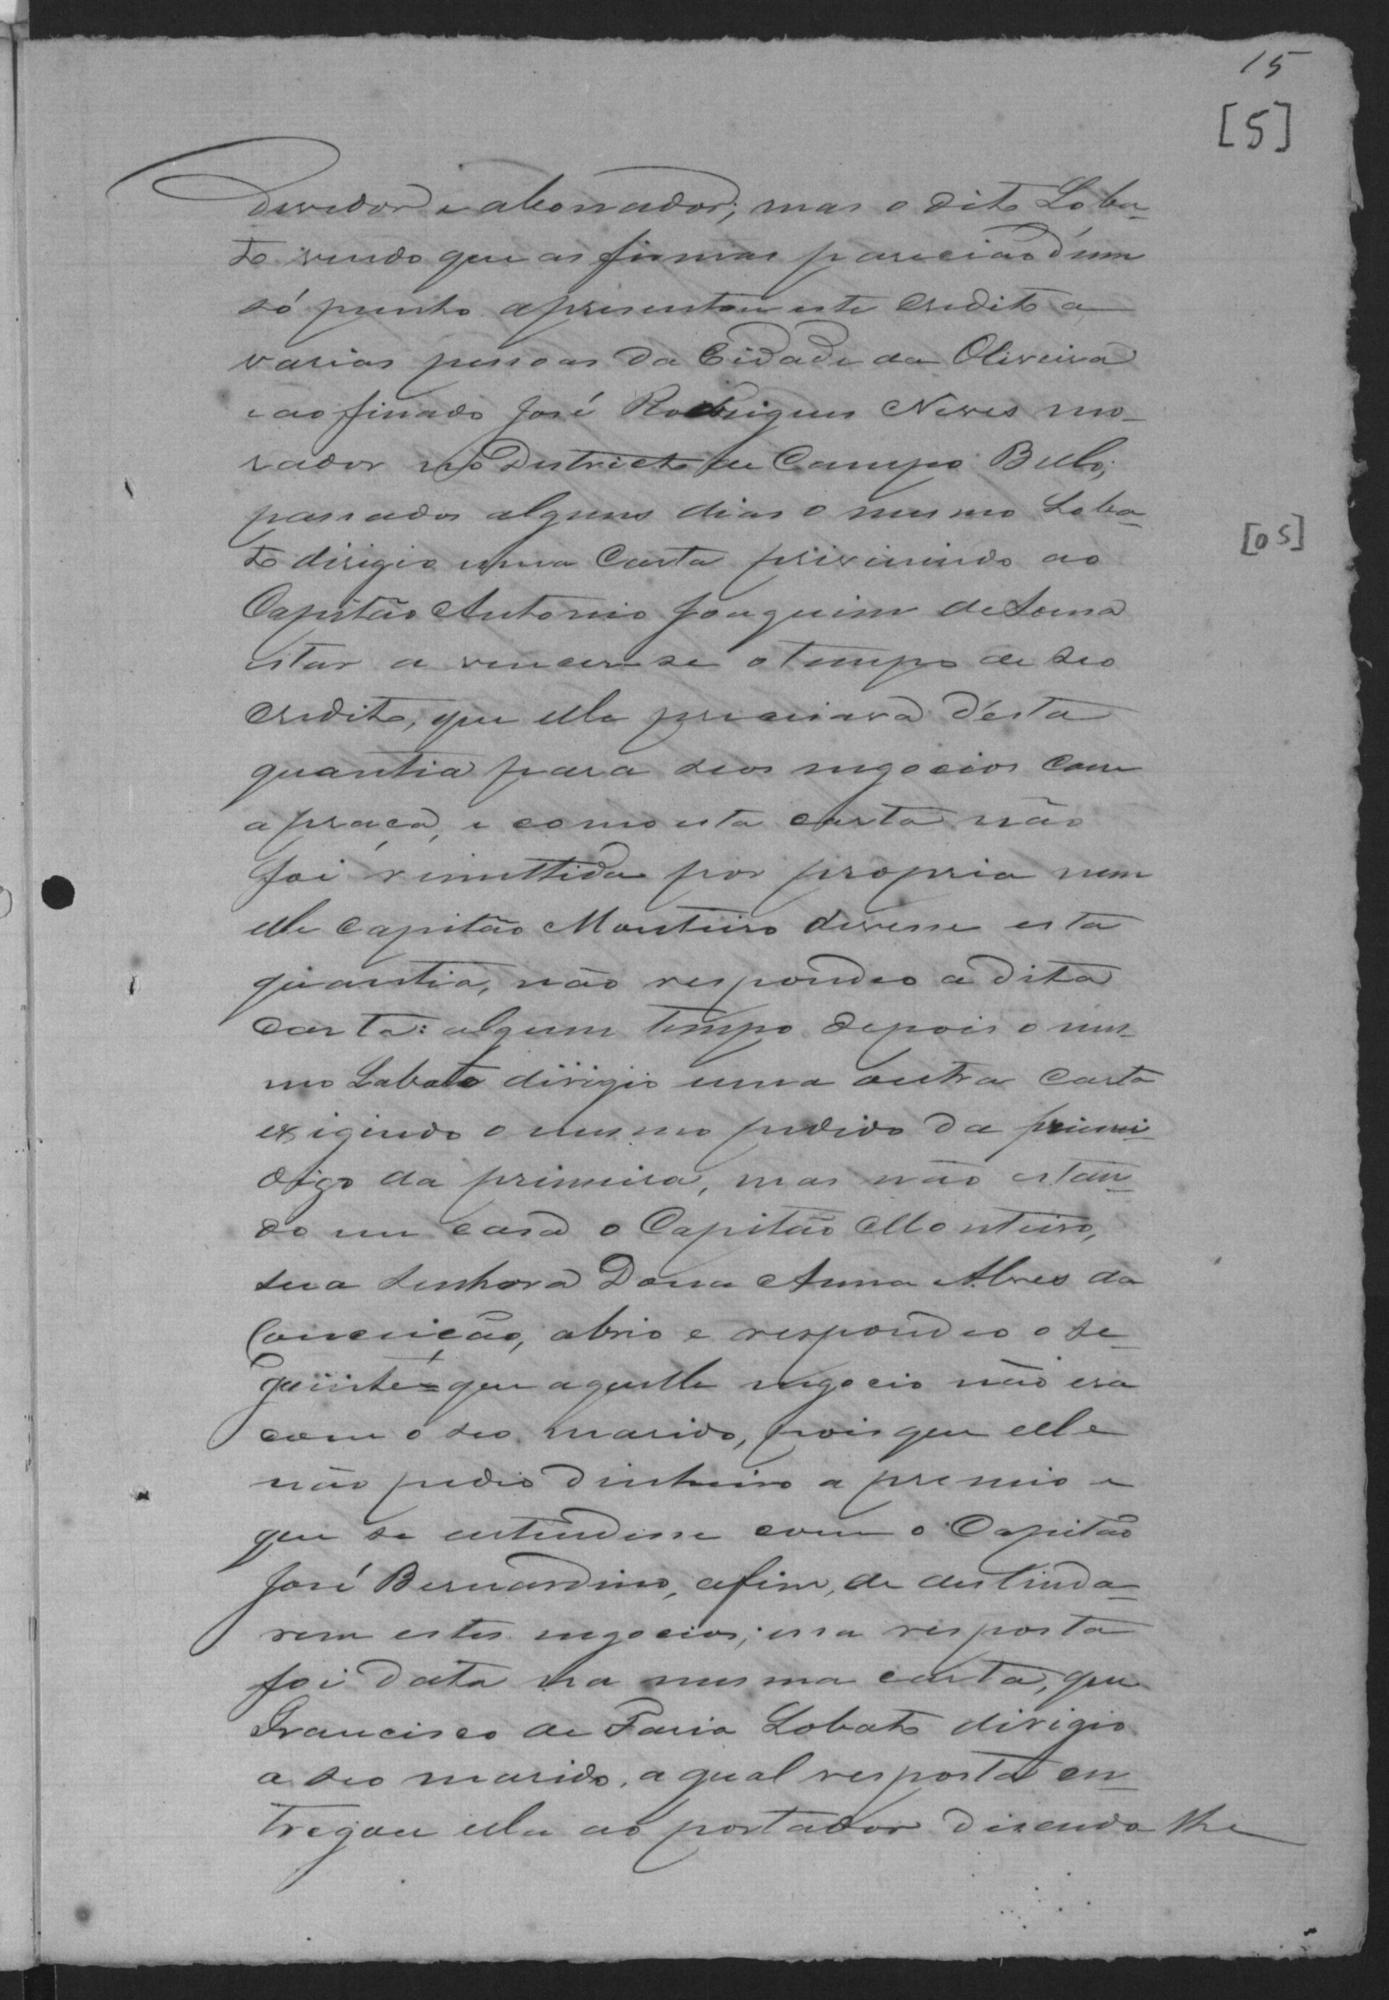 15
[5]
devedor e abonador; mas o dito Loba-
to vendo que as firmas parecião d'um
só punho apresentou este credito a
varias pessoas da Cidade da Oliveira
e ao finado José Rodrigues Neves mo-
rador no Districto de Campo Bello;
passados alguns dias o mesmo Loba-
to dirigio uma Carta privinindo ao
[05]
Capitão Antonio Joaquim de Souza
estar a vencer se o tempo de seo
credito, que elle precisava d'esta
quantia para seos negocios com
a praça, e como esta carta não
foi remettida por propria nem
elle Capitão Monteiro devesse esta
quantia, não respondeo a dita
carta: algum tempo depois o mes-
mo Lobato dirigio uma outra carta
exigindo o mesmo pedido da primei
digo da primeira, mas não estan-
do em casa o Capitão Monteiro,
sua senhora Dona Anna Alves da
Conceição, abrio e respondeo o se-
guinte = que aquelle negocio não era
com o seo marido, pois que elle
não pedio dinheiro a premio e
que se entendesse com o Capitão
José Bernardino, afim, de deslinda-
rem estes negocios; essa resposta
foi data na mesma carta, que
Francisco de Faria Lobato dirigio
a seo marido, a qual resposta en-
tregou ella ao portador dizendo lhe